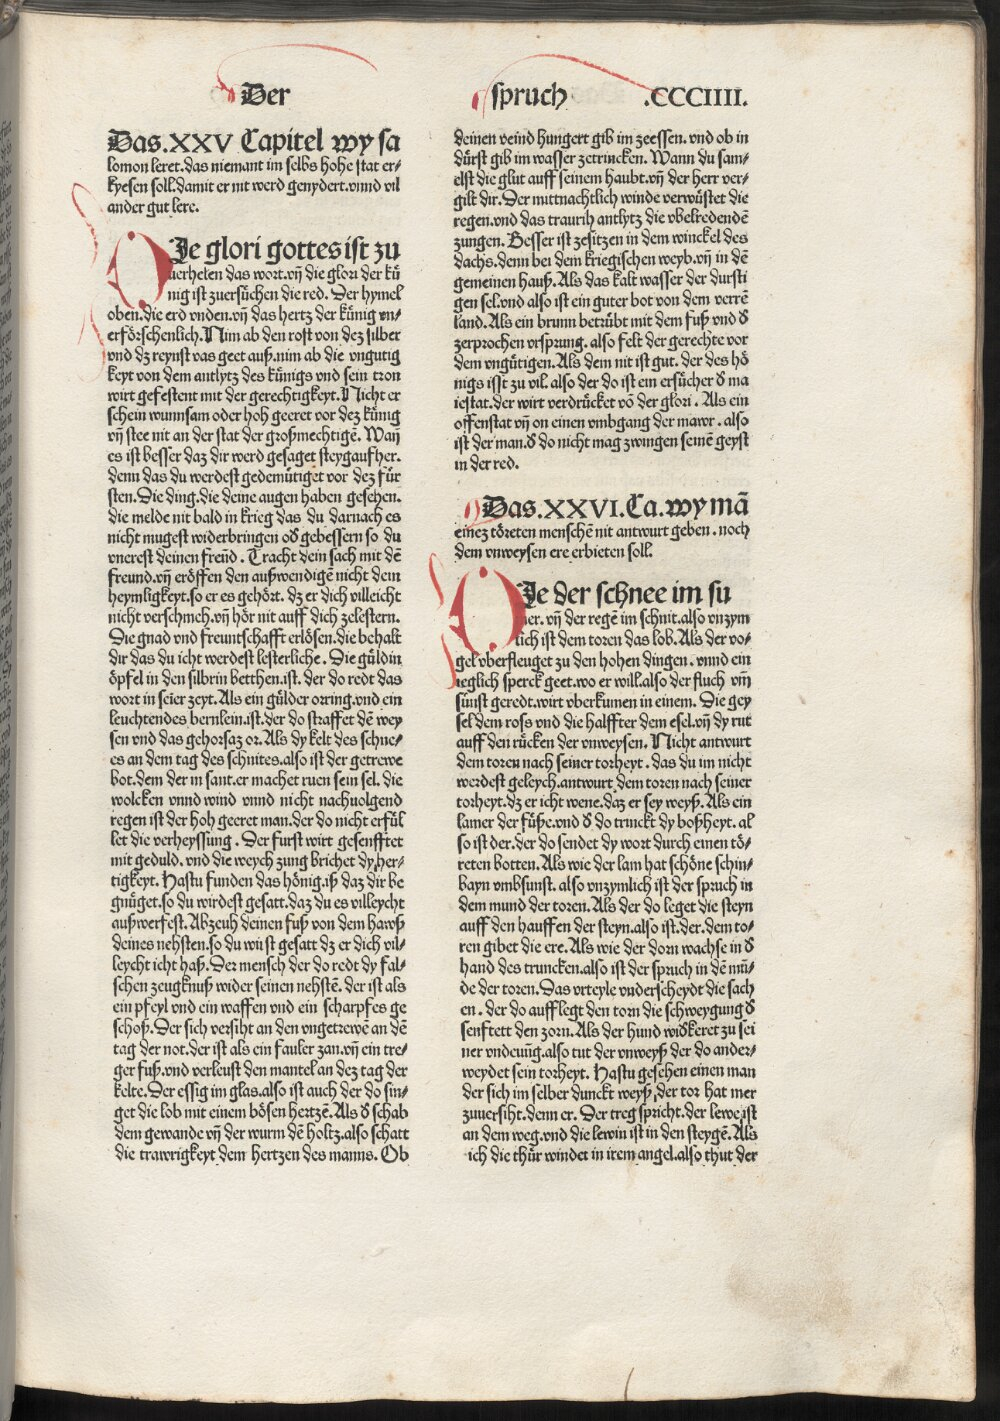 Der
spruch .CCCIIII.
Das.XXV Capitel wy sa
lomon leret.das niemant im selbs hohe stat er⸗
kyesen soll.damit er nit werd genydert.vnnd vil
ander gut lere.
DIe glori gottes ist zu
uerhelen das wort.vn̄ die glori der kü
nig ist zuersüchen die red. Der hymel
oben.die erd vnden.vn̄ das hertz der künig vn⸗
erförschenlich.Nim ab den rost von dez silber
vnd dz reynst vas geet auß.nim ab die vngutig
keyt von dem antlytz des künigs vnd sein tron
wirt gefestent mit der gerechtigkeyt.Nicht er
schein wunnsam oder hoh geeret vor dez künig
vn̄ stee nit an der stat der großmechtigē. Wan̄
es ist besser daz dir werd gesaget steyg auf her.
denn das du werdest gedemütiget vor dez für
sten.Die ding.die deine augen haben gesehen.
die melde nit bald in krieg das du darnach es
nicht mugest widerbringen oď gebessern so du
vnerest deinen freūd. Tracht dein sach mit dē
freund.vn̄ eröffen den außwendigē nicht dein
heymligkeyt.so er es gehört. dz er dich villeicht
nicht verschmeh.vn̄ hör nit auff dich zelestern.
Die gnad vnd freuntschafft erlösen.die behalt
dir das du icht werdest lesterliche. Die güldin
öpfel in den silbrin betthen.ist. der do redt das
wort in seier zeyt. Als ein gülder orring.vnd ein
leuchtendes bernlein.ist.der do straffet dē wey
sen vnd das gehorsaz or. Als dy kelt des schne⸗
es an dem tag des schnites.also ist der getrewe
bot.dem der in sant.er machet ruen sein sel. die
wolcken vnnd wind vnnd nicht nachuolgend
regen ist der hoh geeret man.der do nicht erfül
let die verheyssung. Der furst wirt gesenfftet
mit geduld. vnd die weych zung brichet dy her⸗
tigkeyt. Hastu funden das hönig.iß daz dir be
gnüget.so du wirdest gesatt.daz du es villeycht
außwerfest. Abzeuh deinen fuß von dem hawß
deines nehsten.so du wirst gesatt dz er dich vil⸗
leycht icht haß. Der mensch der do redt dy fal⸗
schen zeugknuß wider seinen nehstē. der ist als
ein pfeyl vnd ein waffen vnd ein scharpfes ge
schoß. Der sich versiht an den vngetrewē an dē
tag der not.der ist als ein fauler zan.vn̄ ein tre⸗
ger fuß.vnd verleust den mantel an dez tag der
kelte.Der essig im glas.also ist auch der do sin⸗
get die lob mit einem bösen hertzē. Als ď schab
dem gewande vn̄ der wurm dē holtz.also schatt
die trawrigkeyt dem hertzen des manns. Ob
deinen veind hungert gib im zeessen. vnd ob in
dürst gib im wasser zetrincken. Wann du sam⸗
elst die glut auff seinem haubt.vn̄ der herr ver⸗
gilt dir.Der mittnachtlich winde verwüstet die
regen.vnd das traurih antlytz die vbelredendē
zungen. Besser ist zesitzen in dem winckel des
dachs.denn bei dem kriegischen weyb.vn̄ in dē
gemeinen hauß. Als das kalt wasser der dursti
gen sel.vnd also ist ein guter bot von dem verrē
land. Als ein brunn betrübt mit dem fuß vnd ď
zerprochen vrsprung. also felt der gerechte vor
dem vngütigen. Als dem nit ist gut. der des hö
nigs isst zu vil. also der do ist ein ersücher ď ma
iestat.der wirt verdrücket vō der glori. Als ein
offenstat vn̄ on einen vmbgang der mawr. also
ist der man.ď do nicht mag zwingen seinē geyst
in der red.
Das.XXVI.Ca.wy mā
einez töreten menschē nit antwurt geben. noch
dem vnweysen ere erbieten soll.
DIe der schnee im su
mer. vn̄ der regē im schnit.also vnzym
lich ist dem toren das lob. Als der vo⸗
gel vberfleuget zu den hohen dingen. vnnd ein
ieglich sperck geet.wo er will.also der fluch vm̄
sünst geredt.wirt vberkumen in einem. Die gey
sel dem ross vnd die halffter dem esel.vn̄ dy rut
auff den rücken der vnweysen. Nicht antwurt
dem toren nach seiner torheyt. das du im nicht
werdest geleych.antwurt dem toren nach seiner
torheyt.dz er icht wene.daz er sey weyß. Als ein
lamer der füße.vnd ď do trinckt dy boßheyt. al
so ist der.der do sendet dy wort durch einen tö⸗
reten botten. Als wie der lam hat schöne schin⸗
bayn vmbsunst. also vnzymlich ist der spruch in
dem mund der toren. Als der do leget die steyn
auff den hauffen der steyn.also ist.der.dem to⸗
ren gibet die ere. Als wie der dorn wachse in ď
hand des truncken.also ist der spruch in dē mū⸗
de der toren. Das vrteyle vnderscheydt die sach
en. der do aufflegt den torn die schweygung ď
senftett den zorn. Als der hund wiďkeret zu sei
ner vndeuūg.also tut der vnweyß der do ander⸗
weydet sein torheyt. Hastu gesehen einen man
der sich im selber dunckt weyß.der tor hat mer
zuuersiht.denn er. Der treg spricht.der lewe ist
an dem weg.vnd die lewin ist in den steygē. Als
ich die thür windet in irem angel.also thut der